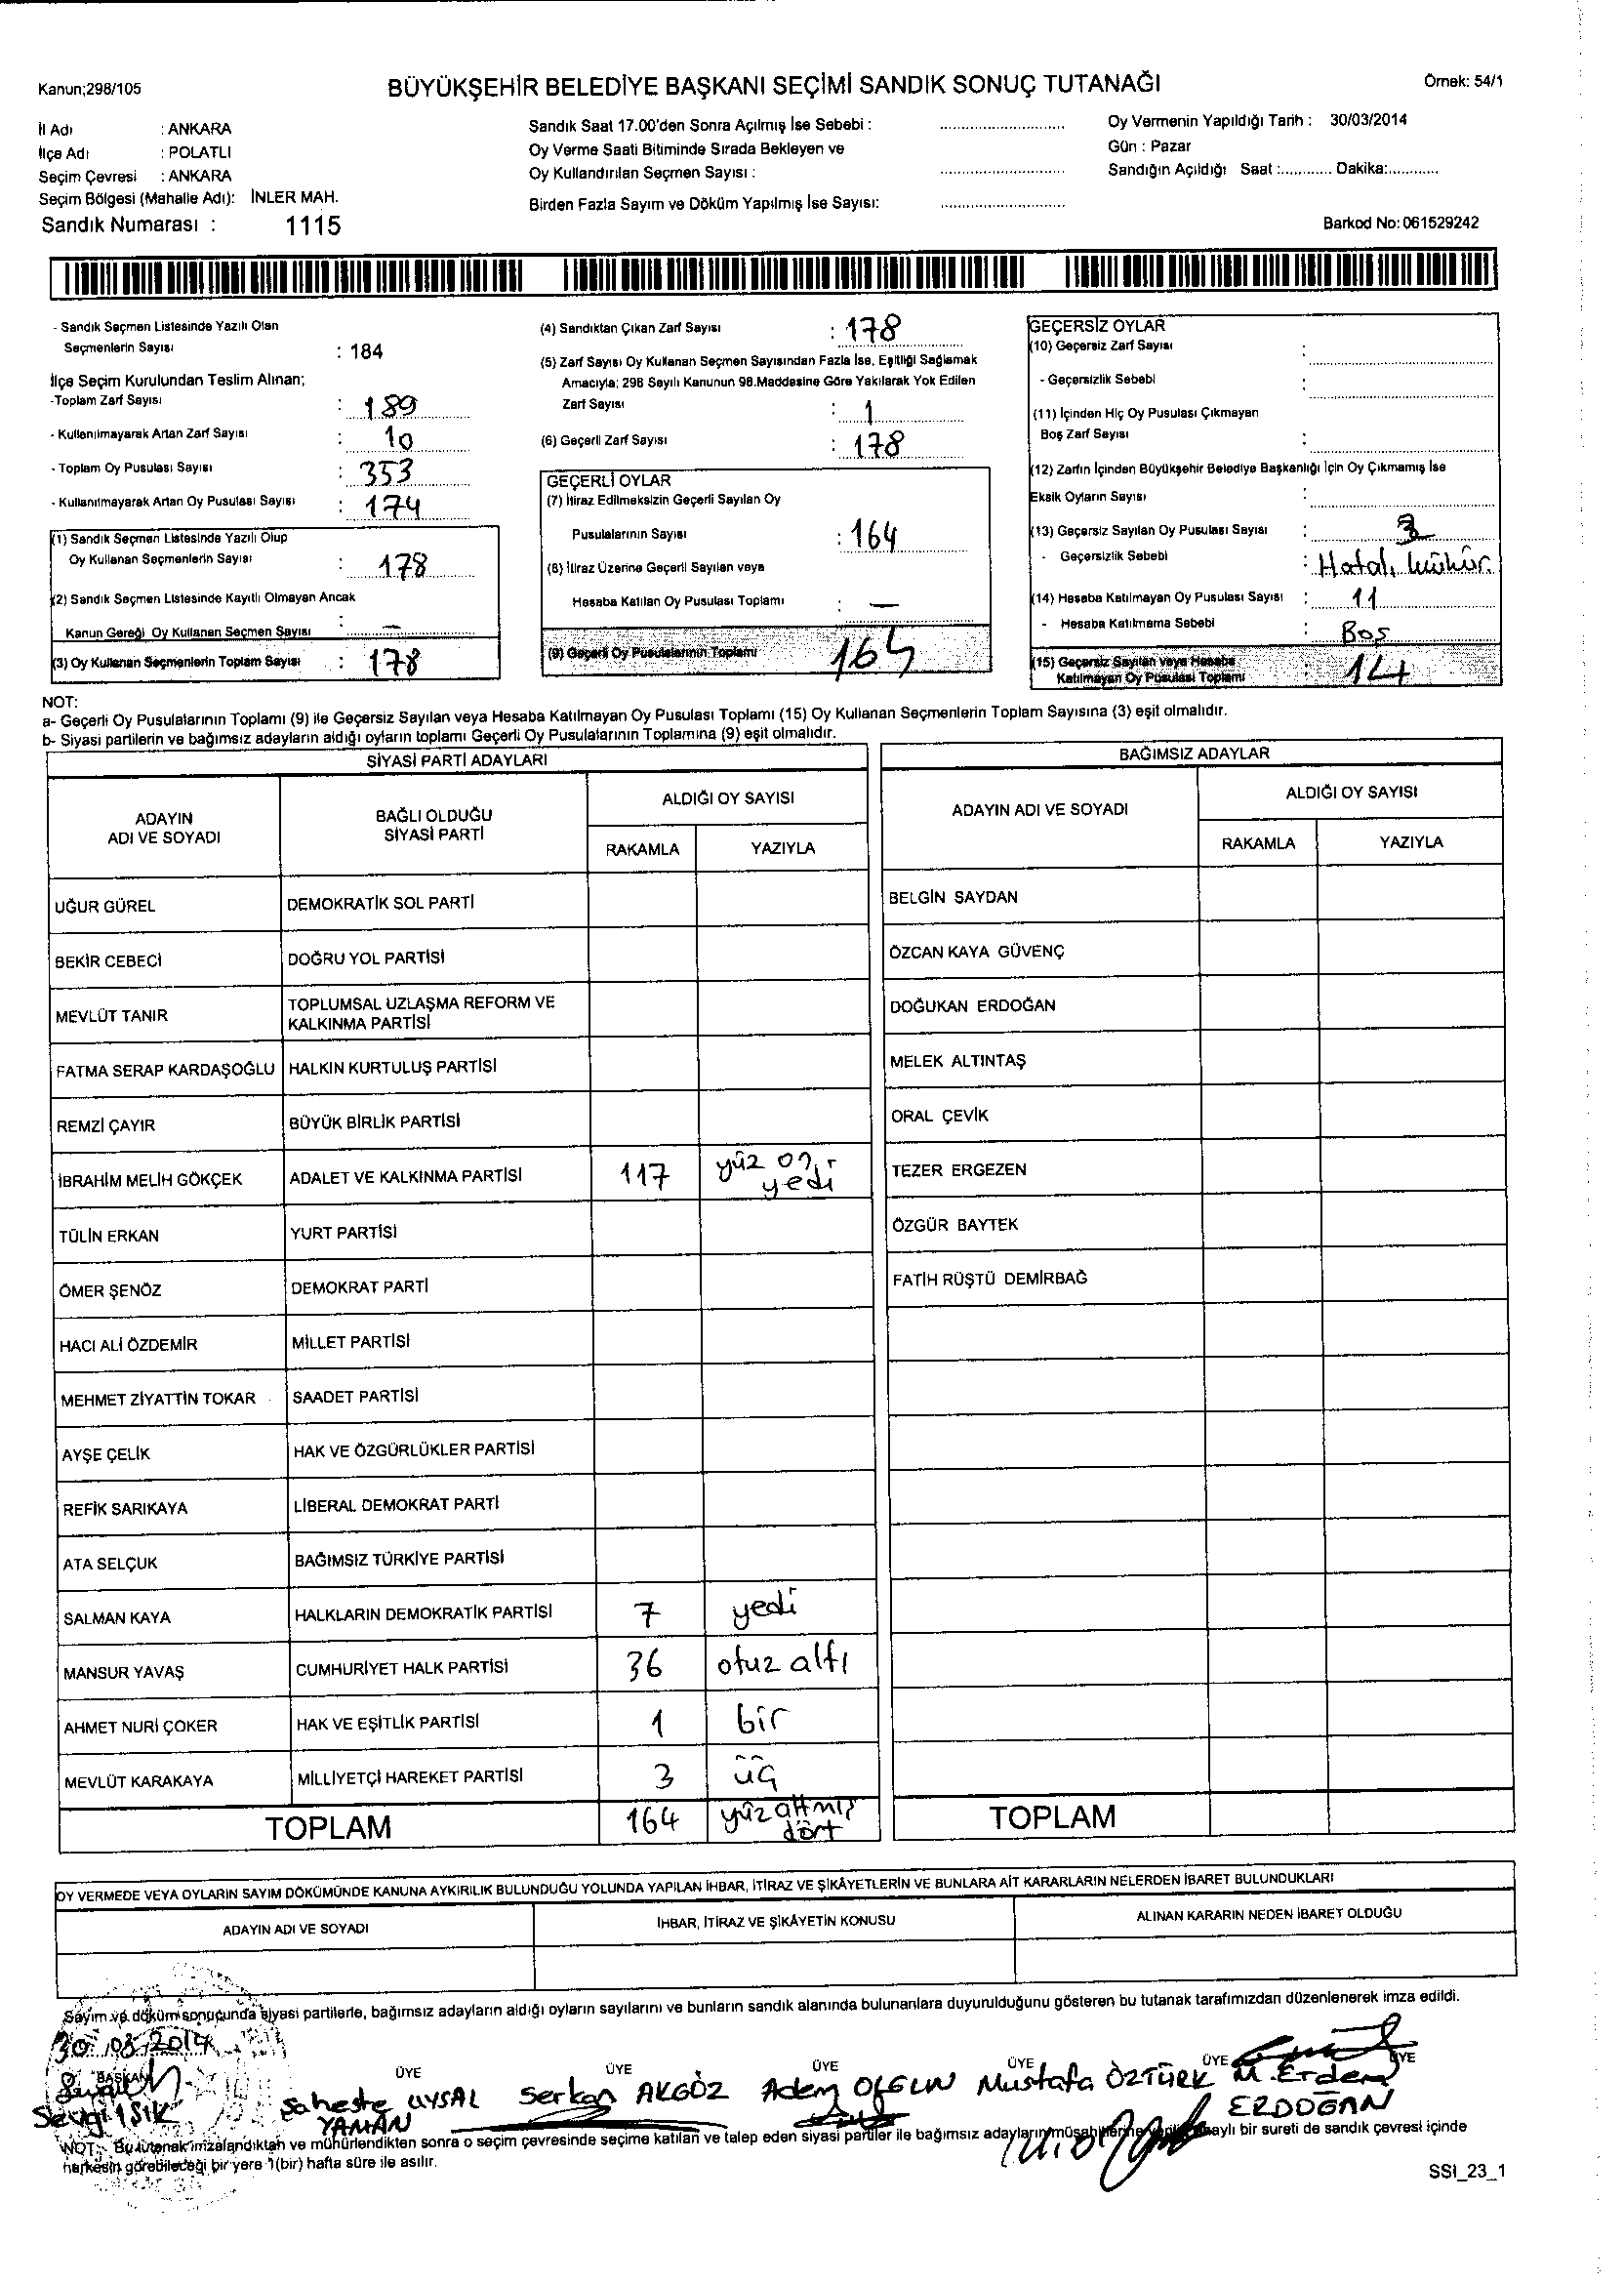 Kanun;298/105
BÜYÜKŞEHİR BELEDİYE BAŞKANI SEÇİMİ SANDIK SONUÇ TUTANAĞI
Örnek: 54/1
İl Adı : ANKARA
İlçe Adı : POLATLI
Seçim Çevresi : ANKARA
Seçim Bölgesi (Mahalle Adı): İNLER MAH.
Sandık Numarası : 1115
Sandık Saat 17.00'den Sonra Açılmış İse Sebebi :
Oy Verme Saati Bitiminde Sırada Bekleyen ve
Oy Kullandırılan Seçmen Sayısı :
Birden Fazla Sayım ve Döküm Yapılmış İse Sayısı:
Oy Vermenin Yapıldığı Tarih : 30/03/2014
Gün : Pazar
Sandığın Açıldığı Saat :............ Dakika:............
Barkod No: 061529242
- Sandık Seçmen Listesinde Yazılı Olan
Seçmenlerin Sayısı : 184
İlçe Seçim Kurulundan Teslim Alınan;
-Toplam Zarf Sayısı : 189
- Kullanılmayarak Artan Zarf Sayısı : 10
- Toplam Oy Pusulası Sayısı : 353
- Kullanılmayarak Artan Oy Pusulası Sayısı : 174
(1) Sandık Seçmen Listesinde Yazılı Olup
Oy Kullanan Seçmenlerin Sayısı : 178
(2) Sandık Seçmen Listesinde Kayıtlı Olmayan Ancak
Kanun Gereği Oy Kullanan Seçmen Sayısı : —
(3) Oy Kullanan Seçmenlerin Toplam Sayısı : 178
(4) Sandıktan Çıkan Zarf Sayısı : 178
(5) Zarf Sayısı Oy Kullanan Seçmen Sayısından Fazla İse, Eşitliği Sağlamak
Amacıyla; 298 Sayılı Kanunun 98.Maddesine Göre Yakılarak Yok Edilen
Zarf Sayısı : 1
(6) Geçerli Zarf Sayısı : 178
GEÇERLİ OYLAR
(7) İtiraz Edilmeksizin Geçerli Sayılan Oy
Pusulalarının Sayısı : 164
(8) İtiraz Üzerine Geçerli Sayılan veya
Hesaba Katılan Oy Pusulası Toplamı : —
(9) Geçerli Oy Pusulalarının Toplamı 164
GEÇERSİZ OYLAR
(10) Geçersiz Zarf Sayısı :
- Geçersizlik Sebebi :
(11) İçinden Hiç Oy Pusulası Çıkmayan
Boş Zarf Sayısı :
(12) Zarfın İçinden Büyükşehir Belediye Başkanlığı İçin Oy Çıkmamış İse
Eksik Oyların Sayısı :
(13) Geçersiz Sayılan Oy Pusulası Sayısı : 3
- Geçersizlik Sebebi : Hatalı mühür.
(14) Hesaba Katılmayan Oy Pusulası Sayısı : 11
- Hesaba Katılmama Sebebi : Boş
(15) Geçersiz Sayılan veya Hesaba
Katılmayan Oy Pusulası Toplamı : 14
NOT:
a- Geçerli Oy Pusulalarının Toplamı (9) ile Geçersiz Sayılan veya Hesaba Katılmayan Oy Pusulası Toplamı (15) Oy Kullanan Seçmenlerin Toplam Sayısına (3) eşit olmalıdır.
b- Siyasi partilerin ve bağımsız adayların aldığı oyların toplamı Geçerli Oy Pusulalarının Toplamına (9) eşit olmalıdır.
SİYASİ PARTİ ADAYLARI
ADAYIN ADI VE SOYADI
BAĞLI OLDUĞU SİYASİ PARTİ
ALDIĞI OY SAYISI
RAKAMLA YAZIYLA
UĞUR GÜREL DEMOKRATİK SOL PARTİ
BEKİR CEBECİ DOĞRU YOL PARTİSİ
MEVLÜT TANIR TOPLUMSAL UZLAŞMA REFORM VE
KALKINMA PARTİSİ
FATMA SERAP KARDAŞOĞLU HALKIN KURTULUŞ PARTİSİ
REMZİ ÇAYIR BÜYÜK BİRLİK PARTİSİ
İBRAHİM MELİH GÖKÇEK ADALET VE KALKINMA PARTİSİ 117 yüz on
yedi
TÜLİN ERKAN YURT PARTİSİ
ÖMER ŞENÖZ DEMOKRAT PARTİ
HACI ALİ ÖZDEMİR MİLLET PARTİSİ
MEHMET ZİYATTİN TOKAR SAADET PARTİSİ
AYŞE ÇELİK HAK VE ÖZGÜRLÜKLER PARTİSİ
REFİK SARIKAYA LİBERAL DEMOKRAT PARTİ
ATA SELÇUK BAĞIMSIZ TÜRKİYE PARTİSİ
SALMAN KAYA HALKLARIN DEMOKRATİK PARTİSİ 7 yedi
MANSUR YAVAŞ CUMHURİYET HALK PARTİSİ 36 otuz altı
AHMET NURİ ÇOKER HAK VE EŞİTLİK PARTİSİ 1 bir
MEVLÜT KARAKAYA MİLLİYETÇİ HAREKET PARTİSİ 3 üç
TOPLAM 164 yüz altmış
dört
BAĞIMSIZ ADAYLAR
ADAYIN ADI VE SOYADI
ALDIĞI OY SAYISI
RAKAMLA YAZIYLA
BELGİN SAYDAN
ÖZCAN KAYA GÜVENÇ
DOĞUKAN ERDOĞAN
MELEK ALTINTAŞ
ORAL ÇEVİK
TEZER ERGEZEN
ÖZGÜR BAYTEK
FATİH RÜŞTÜ DEMİRBAĞ
TOPLAM
OY VERMEDE VEYA OYLARIN SAYIM DÖKÜMÜNDE KANUNA AYKIRILIK BULUNDUĞU YOLUNDA YAPILAN İHBAR, İTİRAZ VE ŞİKÂYETLERİN VE BUNLARA AİT KARARLARIN NELERDEN İBARET BULUNDUKLARI
ADAYIN ADI VE SOYADI İHBAR, İTİRAZ VE ŞİKÂYETİN KONUSU ALINAN KARARIN NEDEN İBARET OLDUĞU
Sayım ve döküm sonucunda siyasi partilerle, bağımsız adayların aldığı oyların sayılarını ve bunların sandık alanında bulunanlara duyurulduğunu gösteren bu tutanak tarafımızdan düzenlenerek imza edildi.
30.03.2014
BAŞKAN ÜYE ÜYE ÜYE ÜYE ÜYE ÜYE
Sevgi IŞIK
Şaheste UYSAL
YAMAN
Serkan AKGÖZ
Adem OLGUN
Mustafa ÖZTÜRK
M. Erdem
ERDOĞAN
NOT:- Bu tutanak imzalandıktan ve mühürlendikten sonra o seçim çevresinde seçime katılan ve talep eden siyasi partiler ile bağımsız adayların müşahitlerine onaylı bir sureti de sandık çevresi içinde
herkesin görebileceği bir yere 1(bir) hafta süre ile asılır.
SSI_23_1